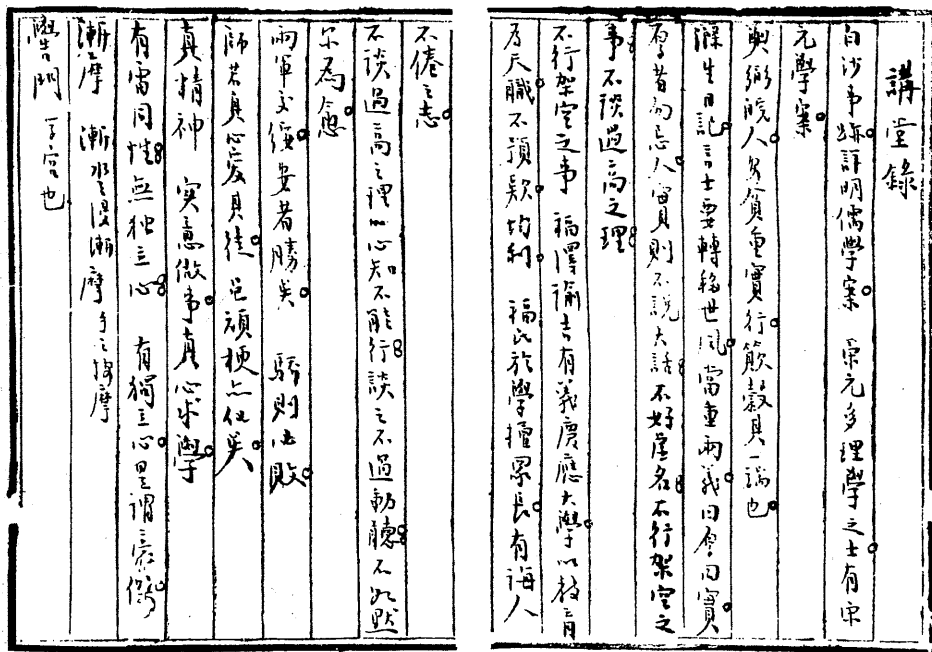 講堂錄
白沙事蹟詳明儒學案 宋元多理學之士有宋
元學案
吳獬皖人 貧重實行 其一端也
滌生日記言士要轉移世風當重兩義曰厚曰實
厚者勿忌人實則不說大話不好虛名不行架空之
事不談過高之理
不行架空之事 福澤諭吉有義慶應大學以教育
為天職不預款均利 福氏於學擅眾長有誨人
不倦之志
不談過高之理心知不能行談之不過動聽不如默
尔為愈
兩軍交綏安者勝矣 驕則必敗
師若真心愛其徒邑頑梗亦化矣
真精神 実意做事真心求學
有雷同性無独立心 有獨立心是謂豪傑
漸摩 漸水之浸漸摩手之按摩
黌門 學宮也